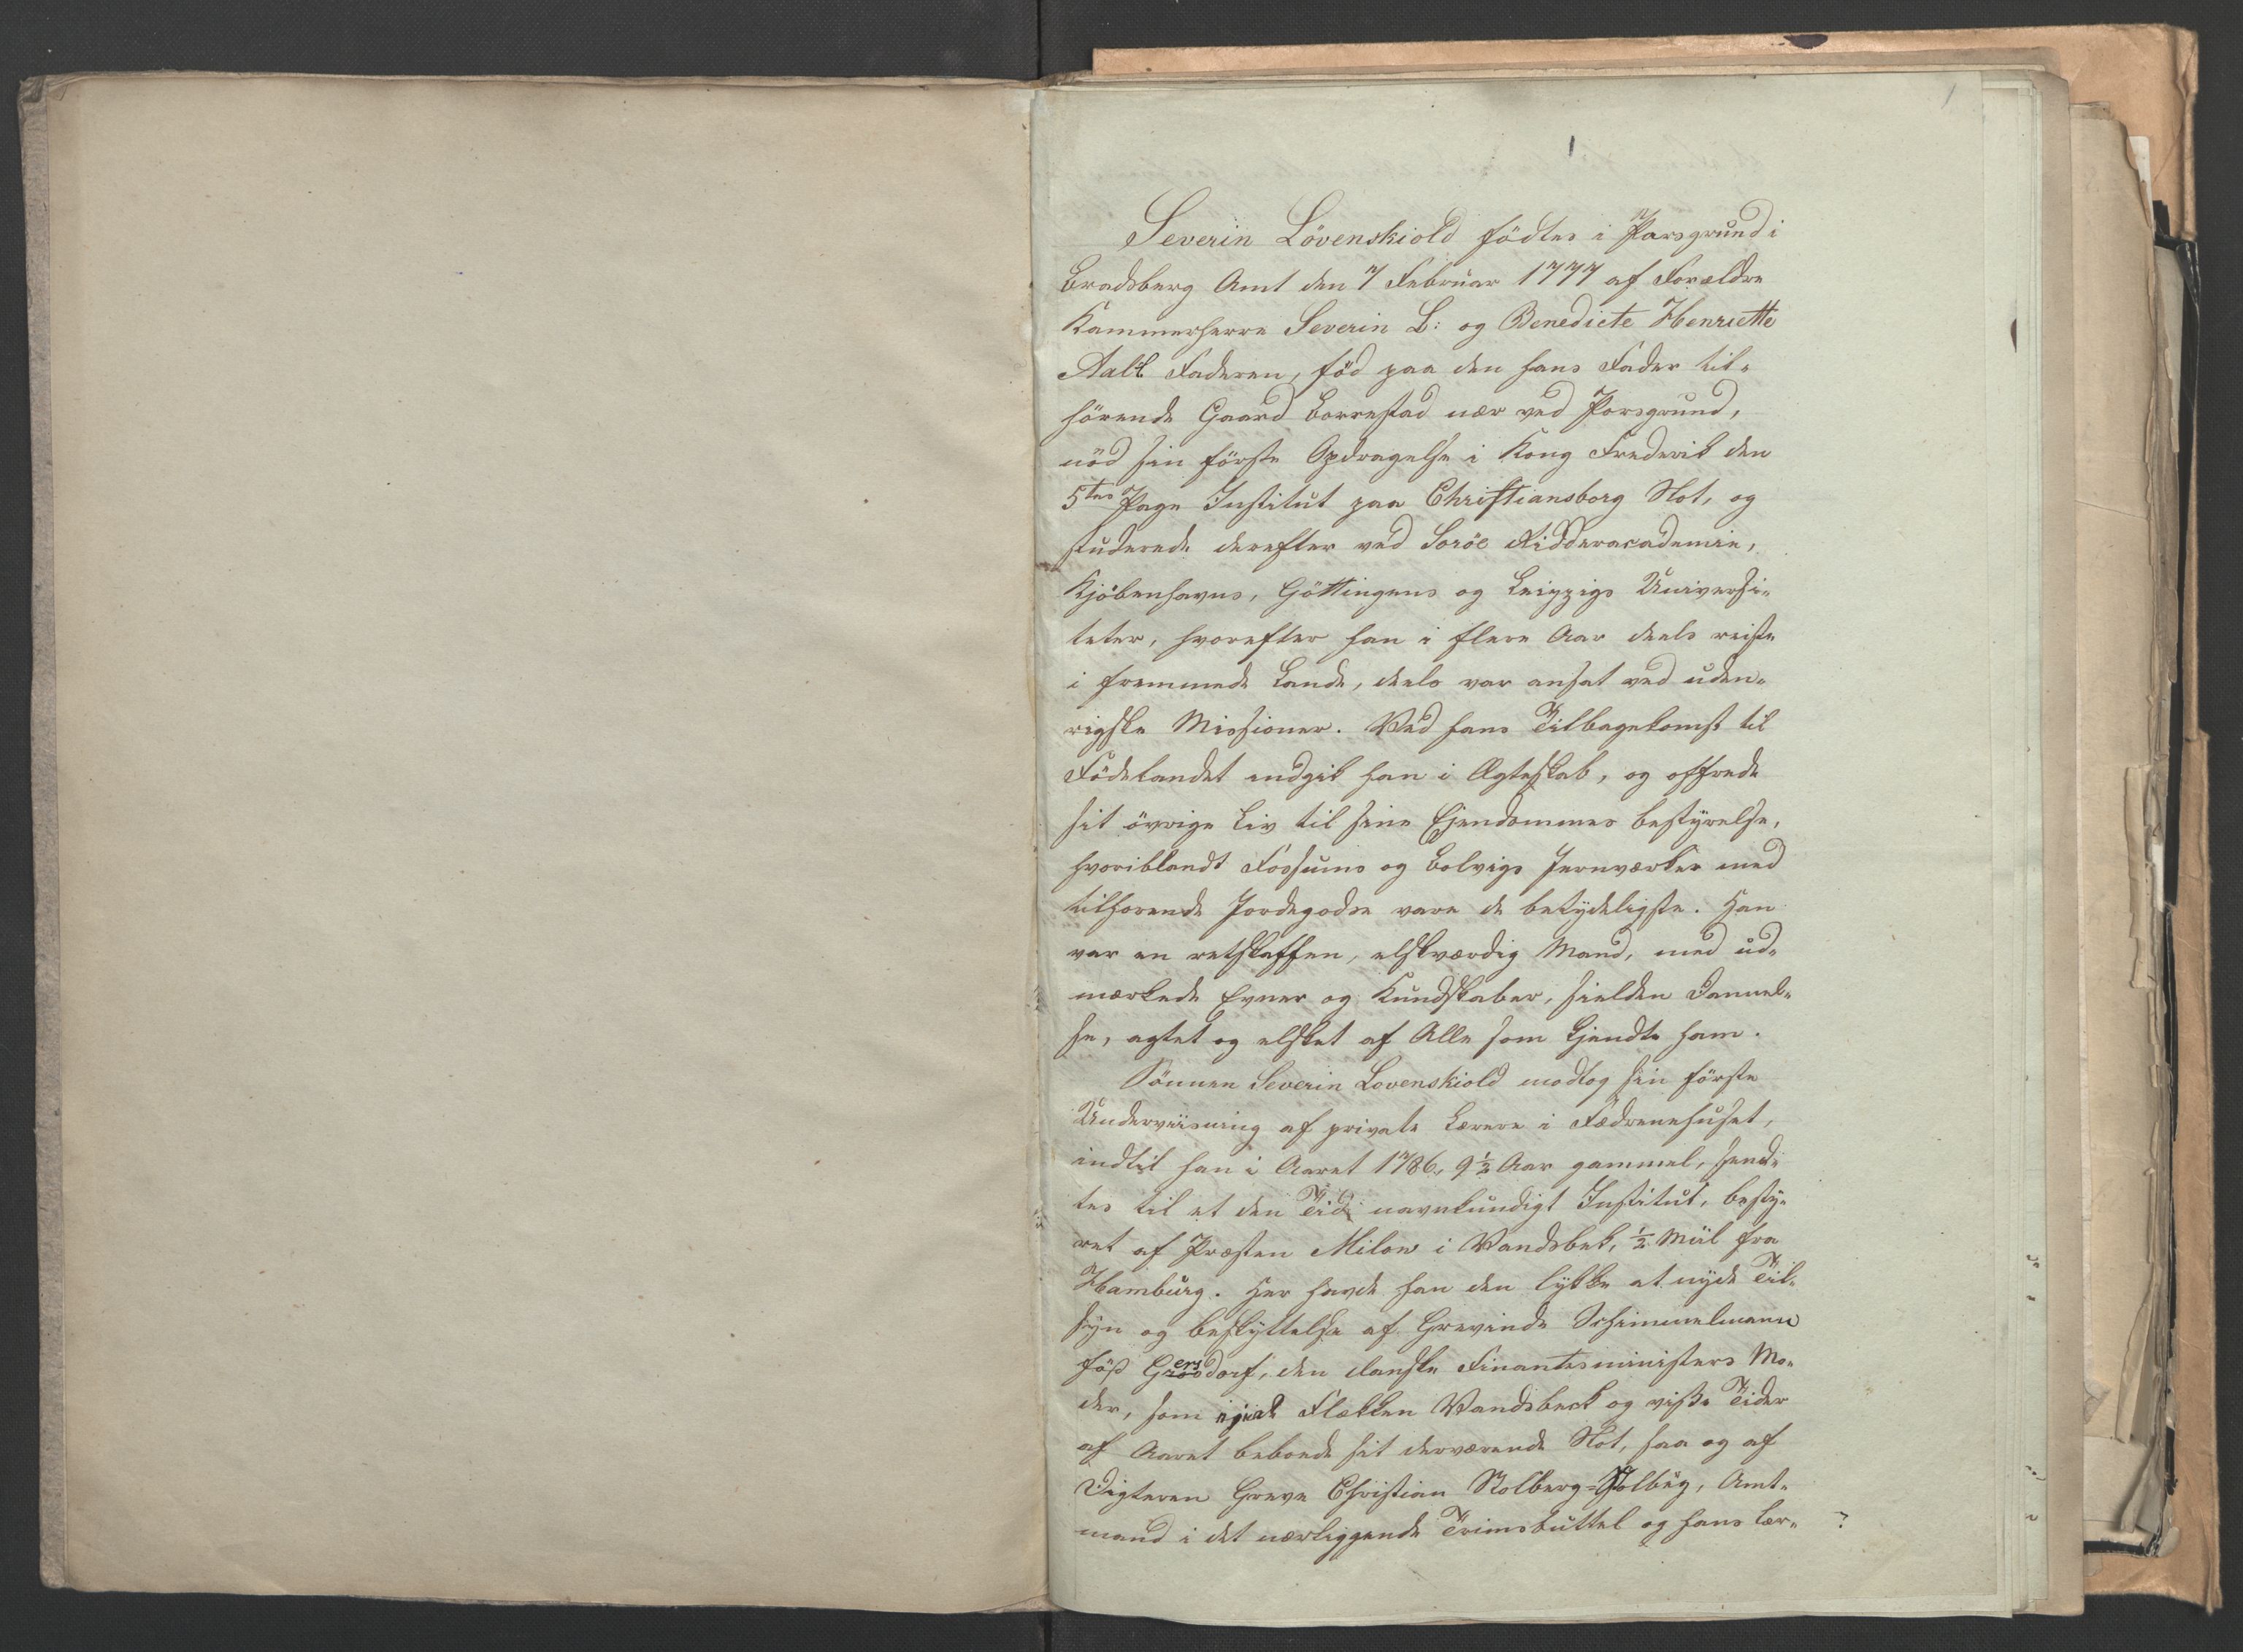 1
1
Severin Lövenskiold födtes i Porsgrund i
Bradsberg Amt den 7 Februar 1777 af Forældre
Kammerherre Severin L: og Benedicte Henriette
Aall. Faderen, föd paa den hans Fader til-
hörende Gaard Borrestad nær ved Porsgrund,
nöd sin förste Opdragelse i Kong Frederik den
5tes Page Institut paa Christiansborg Slot, og
studerede derefter ved Soröe Ridderacademie,
Kjöbenhavns, Göttingens og Leipzigs Universi-
teter, hvorefter han i flere Aar deels reiste
i fremmede Lande, deels var ansat ved uden-
rigske Missioner. Ved hans Tilbagekomst til
Födelandet indgik han i Ægteskab, og offrede
sit övrige Liv til sine Ejendommes bestyrelse,
hvoriblandt Fossums og Bolvigs Jernværker med
tilhorende Jordegodse vare de betydeligste. Han
var en retskaffen, elskværdig Mand, med ud-
mærkede Evner og Kundskaber, sielden Dannel-
se, agtet og elsket af Alle som kjendte ham.
Sönnen Severin Lovenskiold modtog sin förste
Underviisning af private Lærere i Fædrenehuset,
indtil han i Aaret 1786, 9½ Aar gammel, send-
tes til et den Tid navnkundigt Institut, besty-
ret af Præsten Milow i Wandsbek, ½ Miil fra
Hamburg. Her havde han den lykke at nyde Til-
syn og beskyttelse af Grevinde Schimmelmann
föd Gersdorf, den danske Finantsministers Mo-
der, som ejede Flekken Wandsbeck og visse Tider
af Aaret beboede sit derværende Slot, saa og af
Digteren Greve Christian Stolberg-Stolberg, Amt-
mand i det nærliggende Trimsbuttel og hans lær- ?